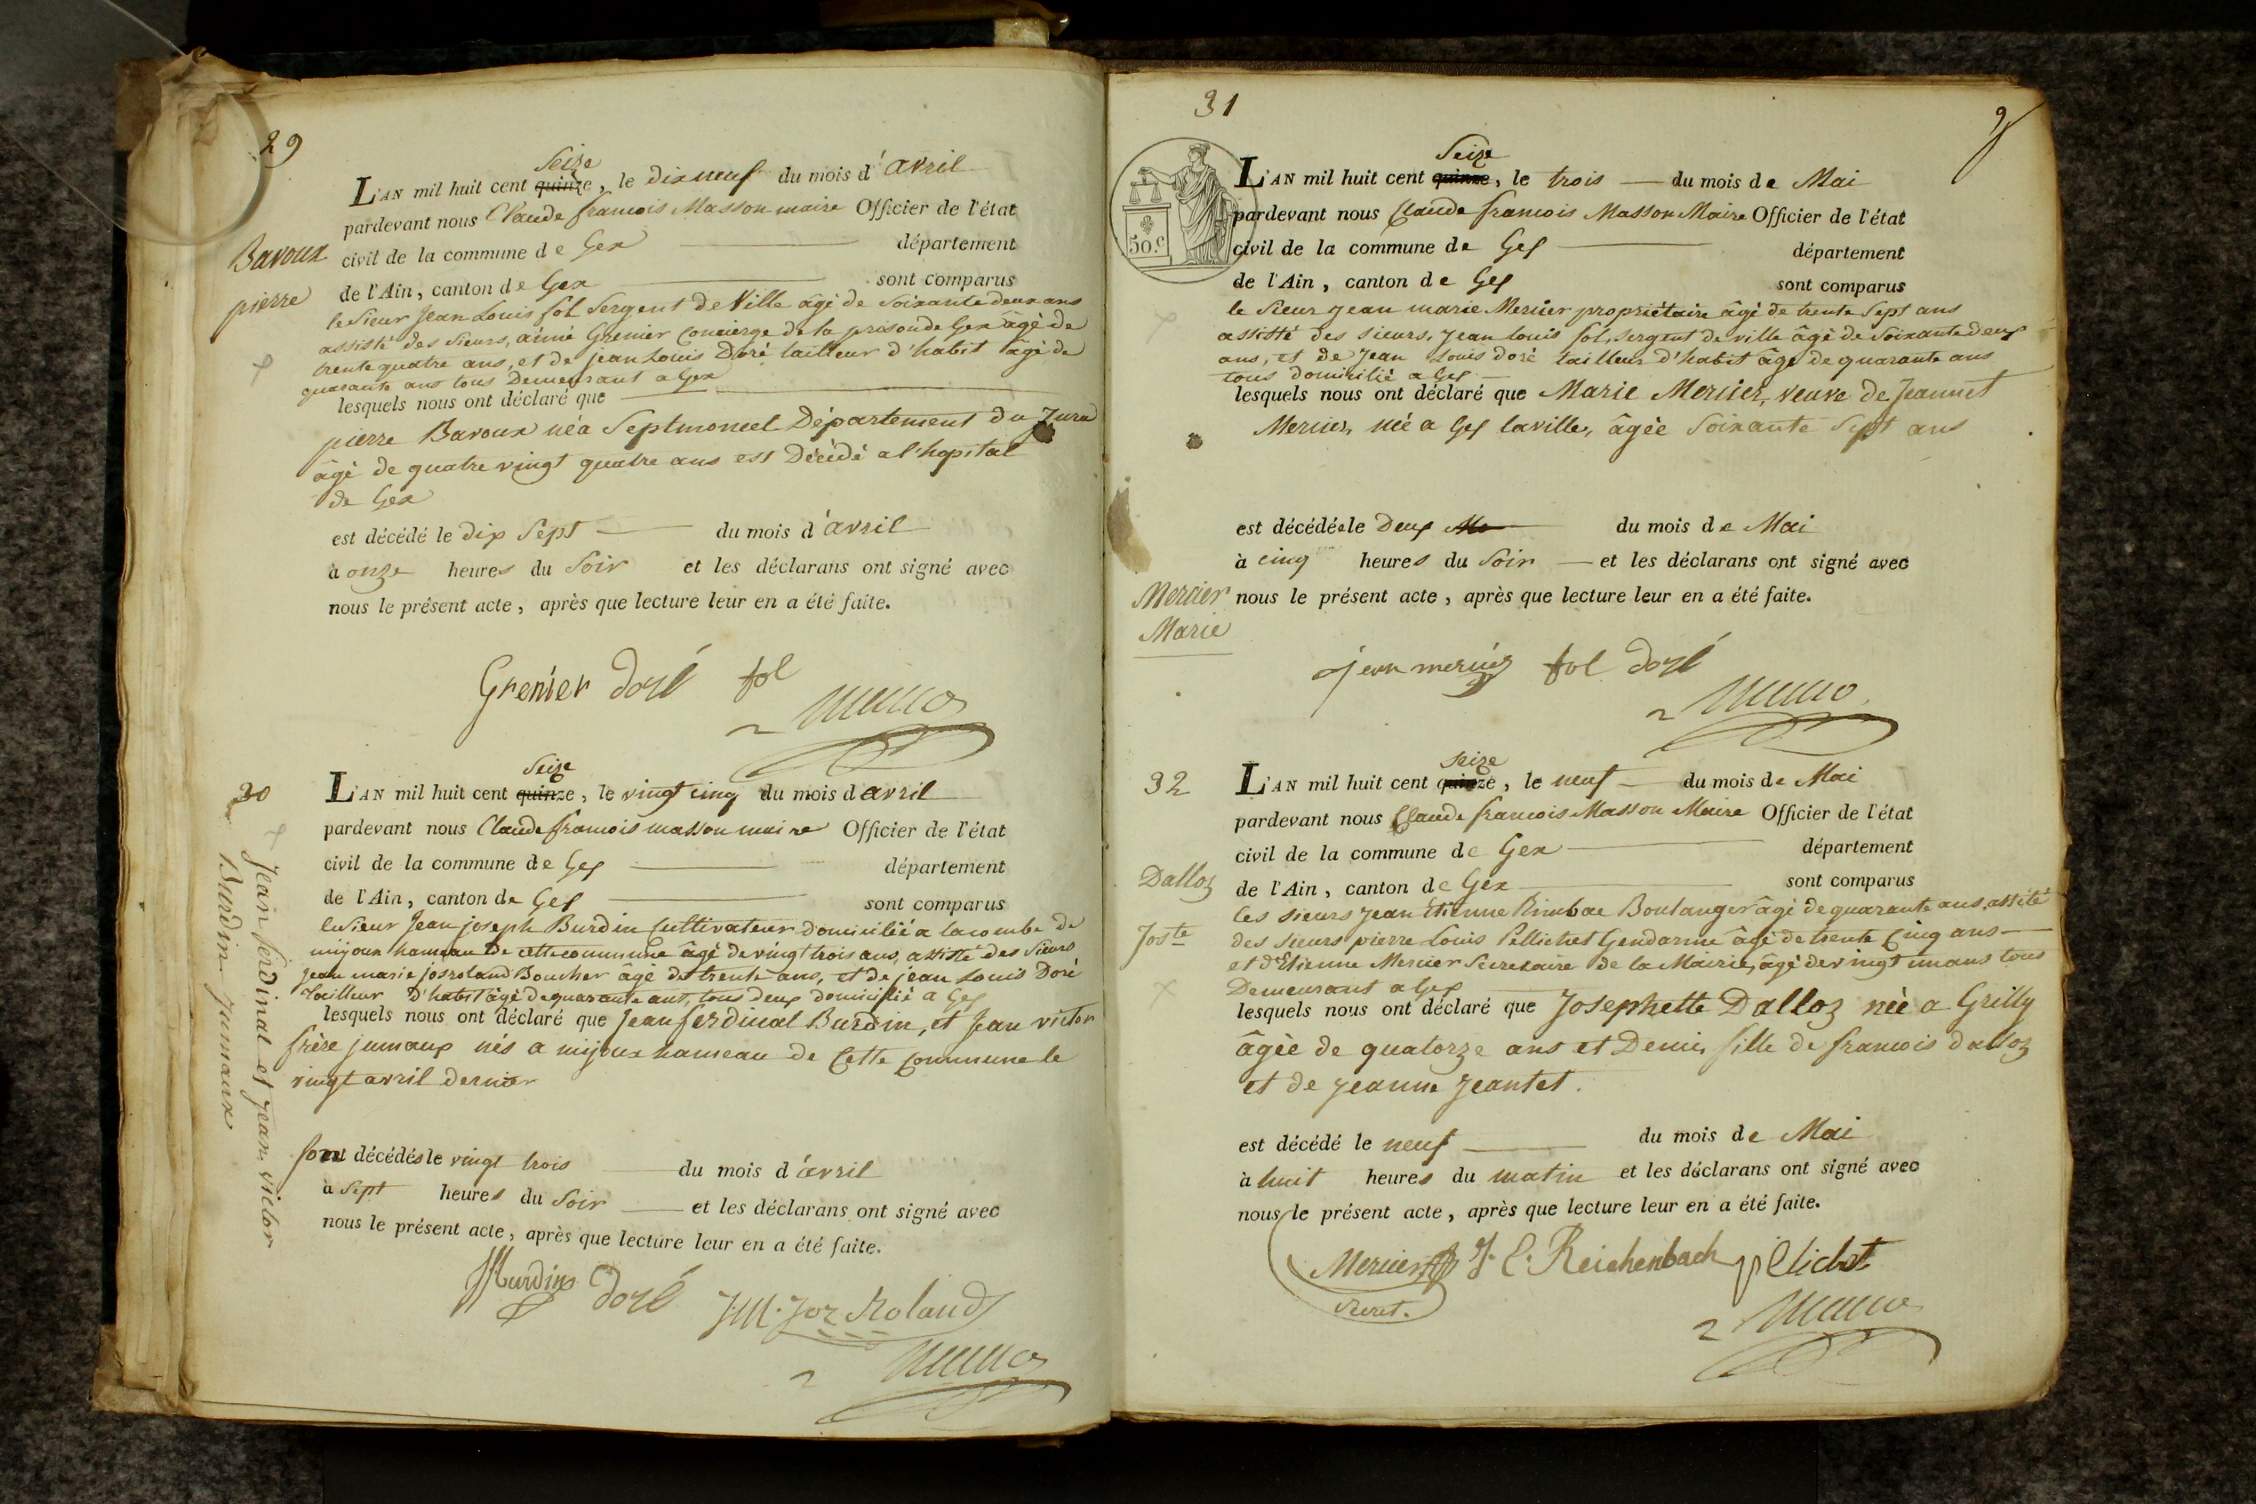 29
Seize
L'AN mil huit cent quinze, le dix neuf du mois d'avril
pardevant nous Claude francois Masson maire Officier de l'état
civil de la commune de Gex département
de l'Ain, canton de Gex sont comparus
Bavoux
pierre
le Sieur Jean Louis fol Sergent de Ville âgé de Soixante deux ans
assisté des Sieurs, aimé Grenier Concierge de la prison de Gex âgé de
trente quatre ans, et de jean Louis Doré tailleur d'habit âgé de
quarante ans tous Demeurant a Gex
lesquels nous ont déclaré que
pierre Bavoux né a Septmoncel Département du Jura
âgé de quatre vingt quatre ans est Décédé a l'hopital
de Gex
est décédé le dix Sept du mois d'avril
à onze heures du Soir et les déclarans ont signé avec
nous le présent acte, après que lecture leur en a été faite.
Grenier doré fol
30
Seize
L'AN mil huit cent quinze, le vingt cinq du mois d'avril
pardevant nous Claude francois masson maire Officier de l'état
civil de la commune de Gex département
de l'Ain, canton de Gex sont comparus
Jean ferdinal et jean victor
Burdin jumaux
le Sieur Jean joseph Burdin Cultivateur domicilié a lacombe de
mijoux hameau de cette commune âgé de vingt trois ans, assisté des Sieurs
Jean marie josroland Boucher age de trente ans, et de jean Louis Doré
tailleur d'habit âgé de quarante ans, tous deux domicilié a Gex
lesquels nous ont déclaré que Jean ferdinal Burdin, et Jean victor
frère jumaux nés a mijoux hameau de Cette commune le
vingt avril dernier
sont décédés le vingt trois du mois d'avril
à Sept heures du Soir et les déclarans ont signé avec
nous le présent acte, après que lecture leur en a été faite.
Burdin doré J.M. Joz Roland
31
9
50 c
Seize
L'AN mil huit cent quinze, le trois du mois de Mai
pardevant nous Claude francois Masson Maire Officier de l'état
civil de la commune de Gex département
de l'Ain, canton de Gex sont comparus
le Sieur jean marie Mercier propriétaire âgé de trente Sept ans
assisté des sieurs, Jean louis fol, sergent de ville âgé de Soixante deux
ans, et de Jean Louis doré tailleur d'habit âgé de quarante ans
tous domicilié a Gex
lesquels nous ont déclaré que Marie Mercier, veuve de Jeannet
Mercier, née a Gex laville, âgée Soixante Sept ans
est décédée le Deux Ma du mois de Mai
à cinq heures du Soir et les déclarans ont signé avec
Mercier
Marie
nous le présent acte, après que lecture leur en a été faite.
jean mercier fol doré
32
Seize
L'AN mil huit cent quinze, le neuf du mois de Mai
pardevant nous Claude francois Masson Maire Officier de l'état
civil de la commune de Gex département
de l'Ain, canton de Gex sont comparus
Dalloz
Joste
les sieurs jean Etienne Boulanger âgé de quarante ans, assité
des sieurs pierre Louis Pellichet Gendarme âgé de trente Cinq ans
et d'Etienne Mercier Secretaire de la Mairie, âgé de vingt un ans tous
Demeurant a Gex
lesquels nous ont déclaré que Josephette Dalloz née a Grilly
âgée de quatorze ans et Demi, fille de francois dalloz
et de jeanne Jeantet.
est décédé le neuf du mois de Mai
à huit heures du matin et les déclarans ont signé avec
nous le présent acte, après que lecture leur en a été faite.
Mercier J. E. Reichenbach
Secret.